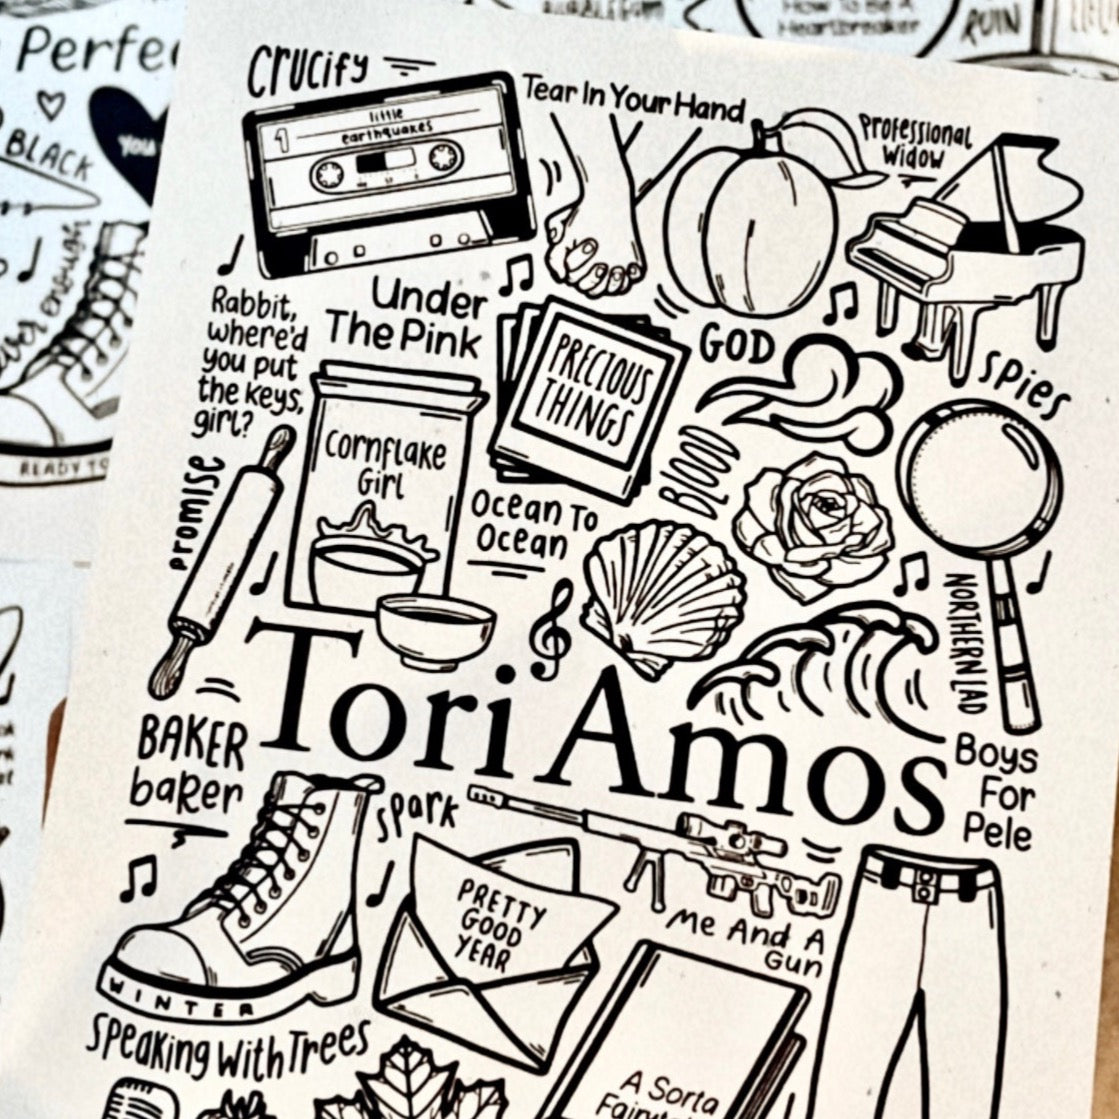 Perfe
BLACK
YOU
ever enough
READY TO
How To Be A
Heartbreaker
RUIN
Crucify
1
little
earthquakes
Tear In Your Hand
Professional
Widow
Under
The Pink
Rabbit,
where'd
you put
the keys,
girl?
PRECIOUS
THINGS
GOD
Spies
Promise
Cornflake
Girl
Ocean To
Ocean
Blood
NORTHERN LAD
Tori Amos
BAKER
baker
Spark
Boys
For
Pele
PRETTY
GOOD
YEAR
Me And A
Gun
WINTER
Speaking With Trees
A Sorta